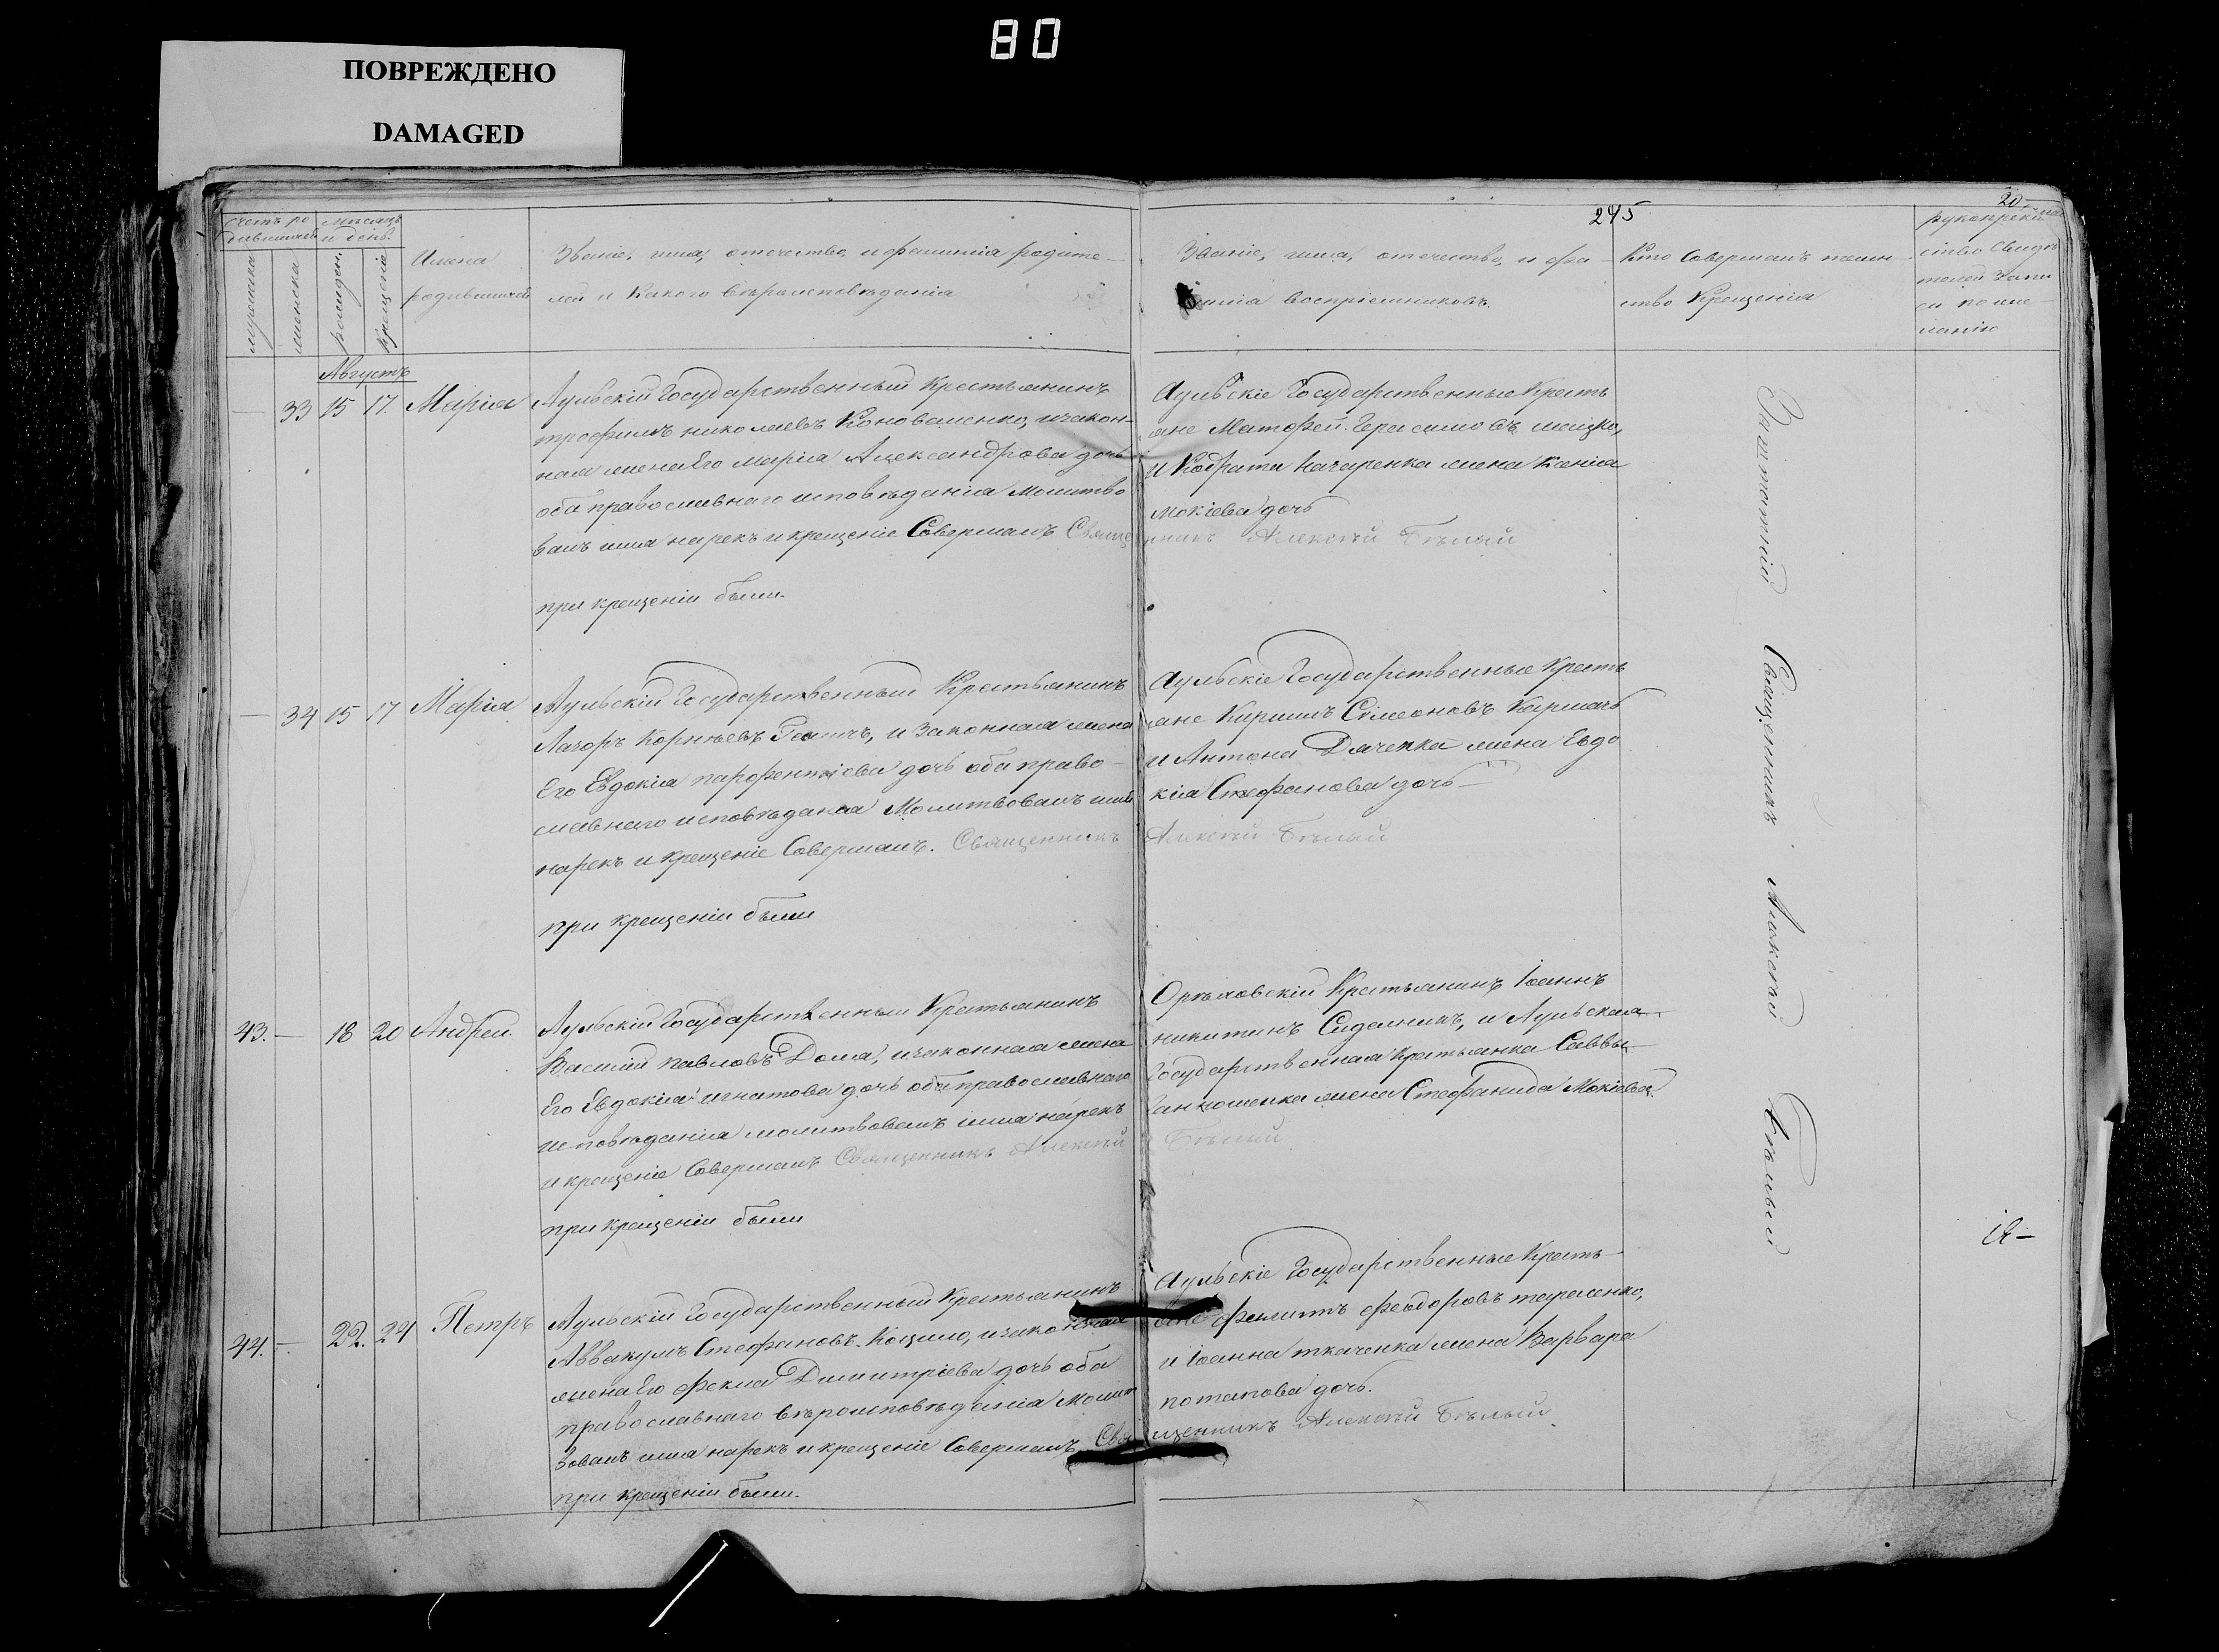 80
ПОВРЕЖДЕНО
DAMAGED
245
20
Счетъ ро
дившихся
мѣсяцъ
и день.
мужеска
женска
рожден.
крещенія
Имена
родившихся
Званіе, имя, отечество, и фамилія родите–
лей и Какого вѣроисповѣданія
Званіе, имя, отечество, и фа–
милія воспріемниковъ.
Кто Совершалъ таин–
ство Крещенія
ство Свидѣ
телей Запи
си по же–
ланію
Августъ
— 33 15 17. Марія
Аульскій Государственный Крестьянинъ
трофимъ николаевъ Коноваленко, и закон–
ная жена Его марія Александрова дочь
оба православнаго исповѣданія Молитво
валъ имя нарекъ и крещеніе Совершалъ Свяще
при крещеніи были.
Аульскіе Государственные Кресть
яне Матофей Герасимовъ
и Кодрата жена Ксенія
мокіева дочь
нникъ Алексѣй Бѣлый
— 34 15 17 Марія
Аульскій Государственный Крестьянинъ
Лазоръ Корнѣевъ и Законная жена
Его Евдокія парфентіева дочь оба право–
славнаго исповѣданія Молитвовалъ имя
нарекъ и крещеніе Совершалъ. Священникъ
при крещеніи были
Аульскіе Государственные Кресть
яне Кирилъ Симеоновъ
и Антона Дяченка жена Евдо
кія Стефанова дочь—
Алексѣй Бѣлый
43. — 18 20 Андрей.
Аульскій Государственный Крестьянинъ
Василій Павловъ Дома, и законная жена
Его Евдокія игнатова дочь оба православнаго
исповѣданія молитвовалъ имя нарекъ
и крещеніе Совершалъ Священникъ Алексѣй
при крещеніи были
Орѣховскій Крестьянинъ Іоаннъ
никитинъ и Аульская
Государственная Крестьянка Саввы
жена Стефанида Мокіева
Бѣлый
44. — 22. 24 Петръ
Аульскій Государственный Крестьянинъ
Аввакумъ Стефановъ. и законная
жена Его фекла Димитріева дочь оба
православнаго вѣроисповѣданія Молит
вовалъ имя нарекъ и крещеніе Совершалъ Свя
при крещеніи были.
Аульскіе Государственные Кресть–
яне филиппъ феодоровъ тарасенко,
и Іоанна ткаченка жена Варвара
потапова дочь.
щенникъ Алексѣй Бѣлый.
Заштатній Священникъ Алексѣй Бѣлый